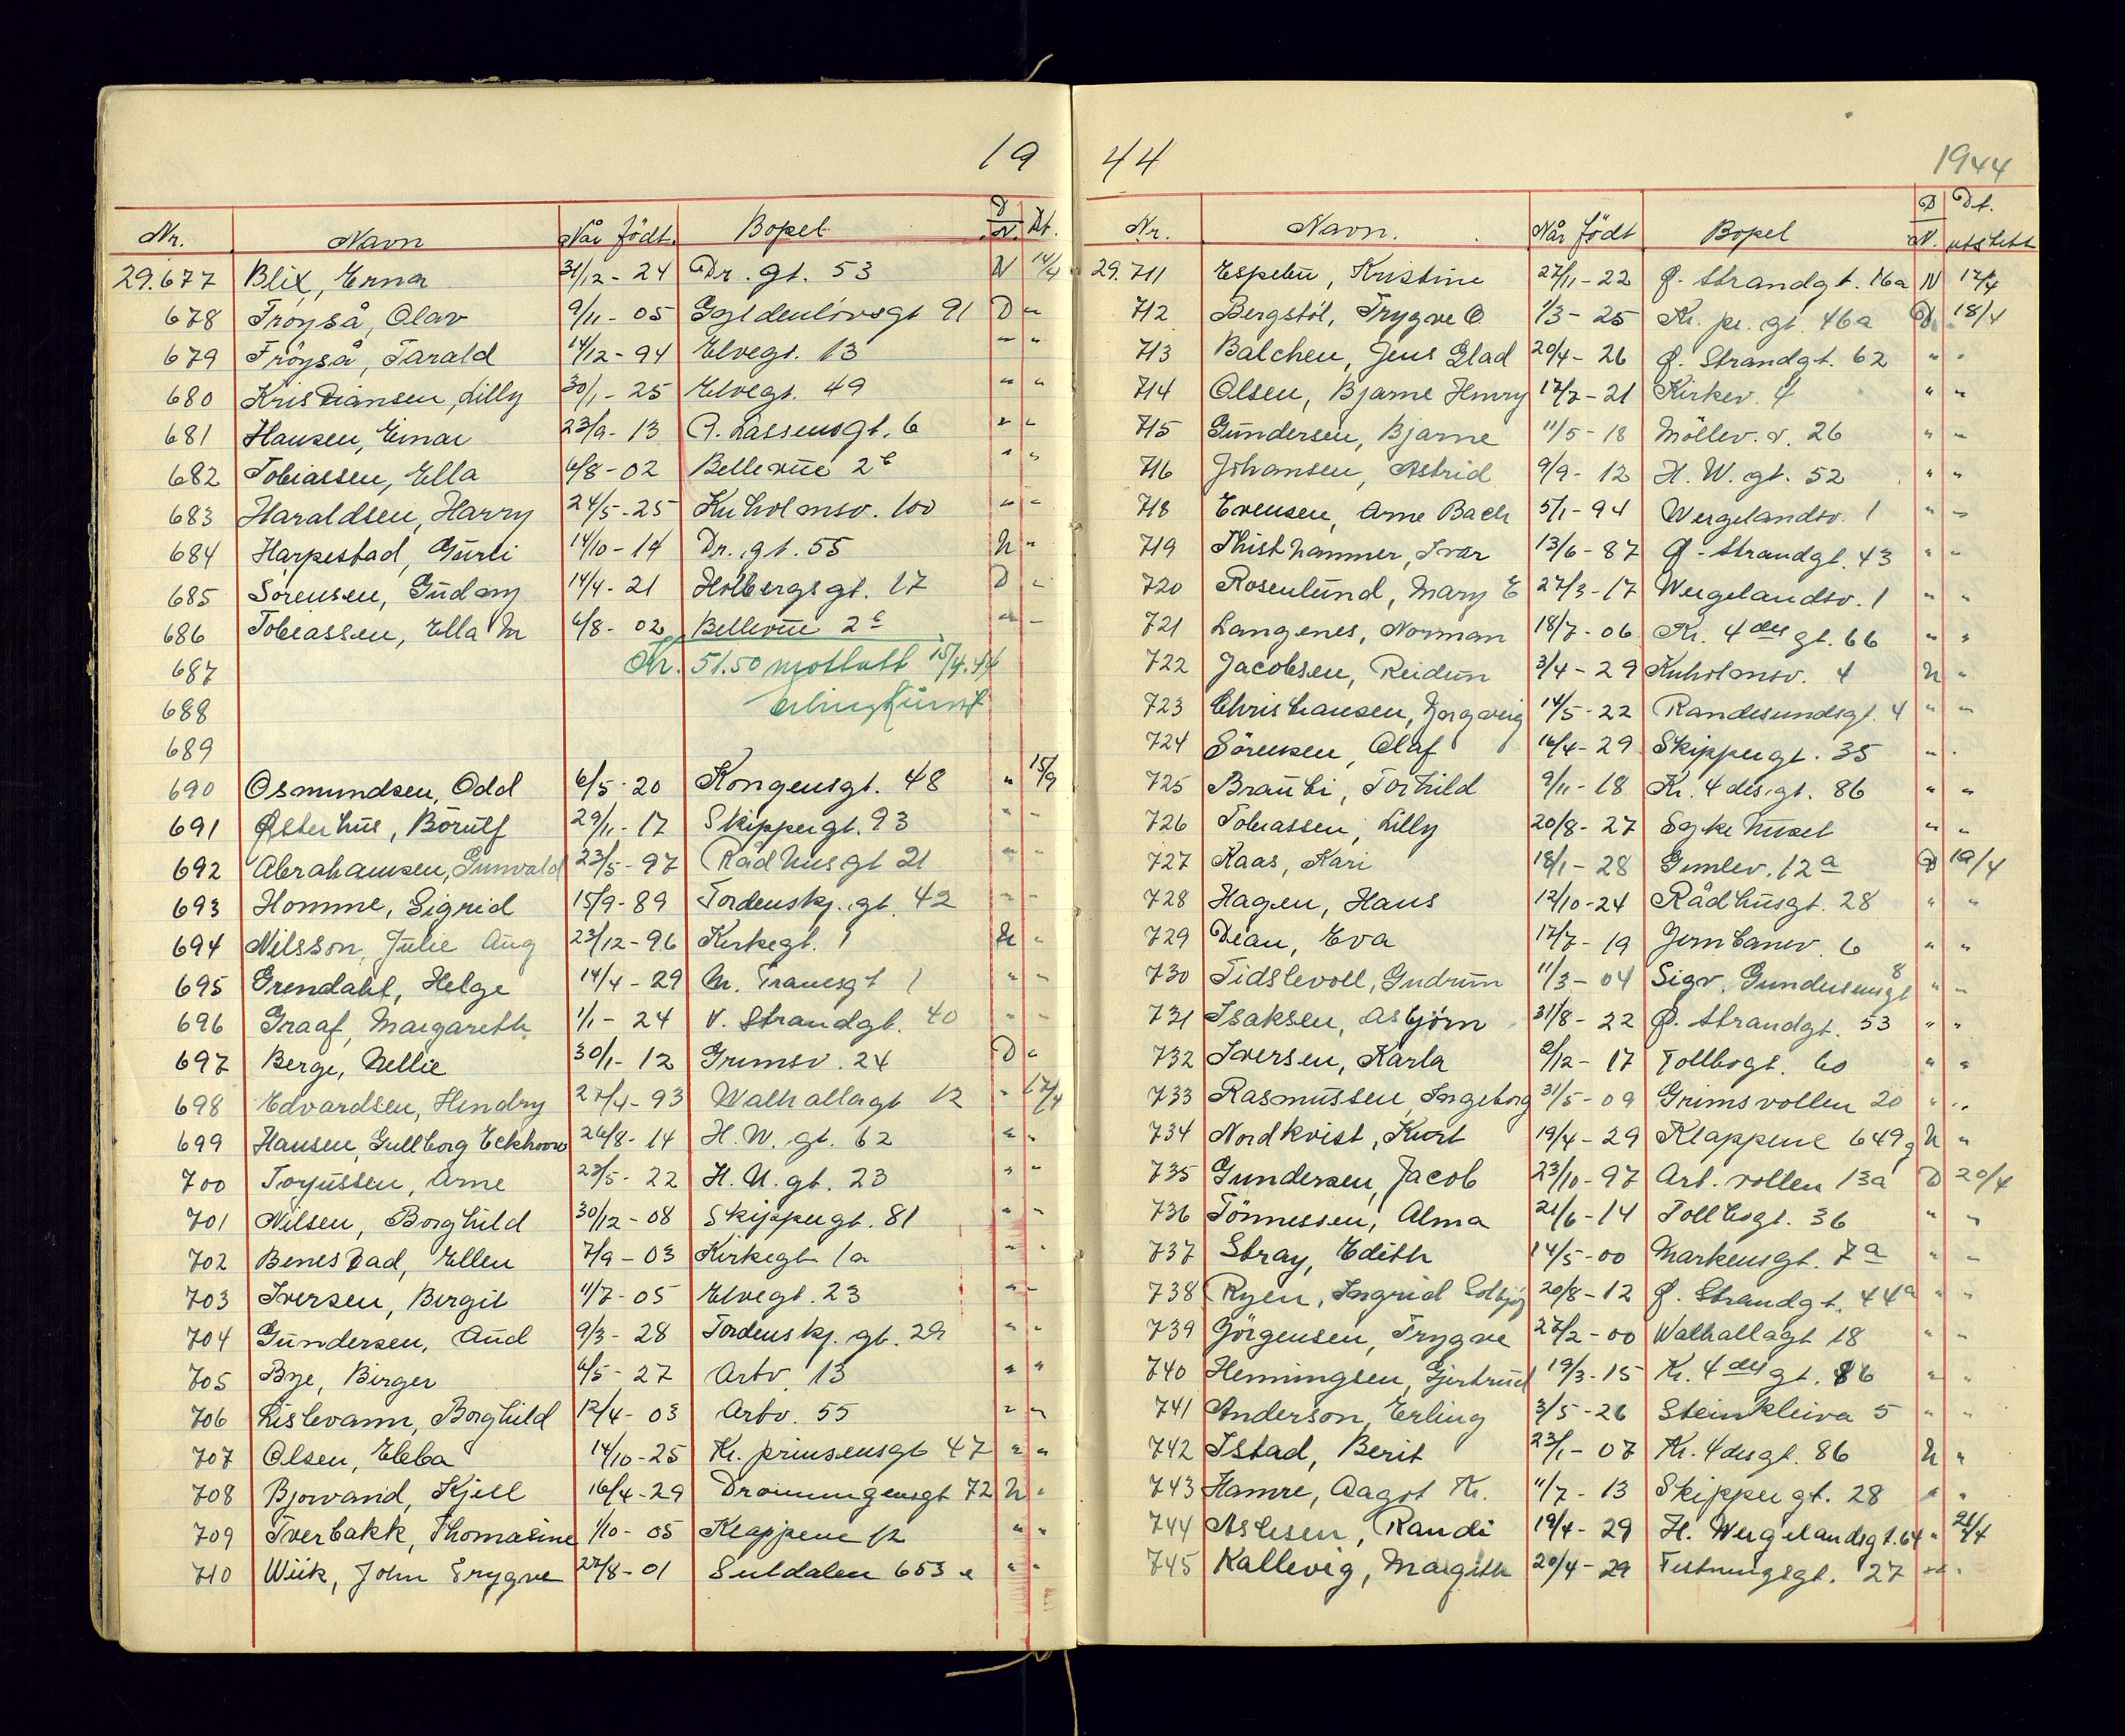 19
Nr. Navn Når födt. Bopel D N. Dt.
29.677 Blix, Erna 31/12 - 24 Dr. gt. 53 N 14/4
678 Fröyså, Olav 9/11 - 05 Gyldenlövsgt 91 D "
679 Fröyså, Tarald 14/12 - 94 Elvegt. 13 " "
680 Kristiansen, Lilly 30/1 - 25 Elvegt. 49 " "
681 Hansen, Einar 23/9 - 13 A. Lassensgt. 6 " "
682 Tobiassen, Ella 6/8 - 02 Bellevue 2c " "
683 Haraldsen, Harry 24/5 - 25 Kuholmsv. 100 " "
684 Harpestad, Gurli 14/10 - 14 Dr. gt. 55 N "
685 Sörensen, Gudny 14/4 - 21 Holbergsgt. 17 D "
686 Tobiassen, Ella M 6/8 - 02 Bellevue 2c " "
687 Kr. 51.50 mottatt 15/4.44
688
689
690 Osmundsen, Odd 6/5 - 20 Kongensgt. 48 " 15/9
691 Østerhus, Börulf 29/11 - 17 Skippergt. 93 " "
692 Abrahamsen, Gunvald 23/5 - 97 Rådhusgt 21 " "
693 Homme, Sigrid 15/9 - 89 Tordenskj. gt. 42 " "
694 Nilsson, Julie Aug 23/12 - 96 Kirkegt. 1 N "
695 Grendahl, Helge 14/4 - 29 M. Tranesgt 1 " "
696 Graaf, Margareth 1/1 - 24 V. Strandgt. 40 " "
697 Berge, Nellie 30/1 - 12 Grimsv. 24 D "
698 Edvardsen, Hendry 27/4 - 93 Walhallagt 12 " 17/4
699 Hansen, Gullborg Eckhoove 26/8 - 14 H. W. gt. 62 " "
700 Torjussen, Arne 23/5 - 22 H. U. gt. 23 " "
701 Nilsen, Borghild 30/12 - 08 Skippergt. 81 " "
702 Benestad, Ellen 7/9 - 03 Kirkegt 1a " "
703 Iversen, Birgit 11/7 - 05 Elvegt. 23 " "
704 Gundersen, Aud 9/3 - 28 Tordenskj. gt. 29 " "
705 Bye, Birger 6/5 - 27 Arbv. 13 " "
706 Lislevann, Borghild 12/4 - 03 Arbv. 55 " "
707 Olsen, Ebba 14/10 - 25 Kr. prinsensgt 47 " "
708 Bjorvand, Kjell 16/4 - 29 Dronningensgt 72 N "
709 Tverbakk, Thomasine 1/10 - 05 Klappene 12 " "
710 Wiik, John Trygve 27/8 - 01 Suldalen 653 e " "
44 1944
Nr. Navn. Når födt Bopel D N. Dt. utstett
29.711 Espeliu, Kristine 27/11 - 22 Ø. Strandgt. 16a N 17/4
712 Bergstöl, Trygve O 1/3 - 25 Kr. pr. gt. 46a D 18/4
713 Balchen, Jens Glad 20/4 - 26 Ø. Strandgt. 62 " "
714 Olsen, Bjarne Henry 17/7 - 21 Kirkev. 4 " "
715 Gundersen, Bjarne 11/5 - 18 Möllev. v. 26 " "
716 Johansen, Astrid 9/9 - 12 H. W. gt. 52 " "
718 Evensen, Arne Bach 5/1 - 94 Wergelandsv. 1 " "
719 Thisthammer, Ivar 13/6 - 87 Ø. Strandgt. 43 " "
720 Rosenlund, Mary E 27/3 - 17 Wergelandsv. 1 " "
721 Langenes, Norman 18/7 - 06 Kr. 4des gt. 66 " "
722 Jacobsen, Reidun 3/4 - 29 Kuholmsv. 4 N "
723 Christiansen, Hergveig 14/5 - 22 Randesundsgt. 4 " "
724 Sörensen, Olaf 16/4 - 29 Skippergt. 35 " "
725 Brauti, Torhild 9/11 - 18 Kr. 4des. gt. 86 " "
726 Tobiassen, Lilly 20/8 - 27 Sykehuset " "
727 Kaas, Kari 18/1 - 28 Gimlev. 12a D 19/4
728 Hagen, Hans 12/10 - 24 Rådhusgt. 28 " "
729 Dean, Eva 17/7 - 19 Jernbanev. 6 " "
730 Tidslevoll, Gudrun 11/3 - 04 Sigv. Gundersensgt 8 " "
731 Isaksen, Asbjörn 31/8 - 22 Ø. Strandgt. 53 " "
732 Iversen, Karla 2/12 - 17 Tollbogt. 60 " "
733 Rasmussen, Ingeborg 31/5 - 09 Grimsvollen 20 " "
734 Nordkvist, Kurt 19/4 - 29 Klappene 649g N "
735 Gundersen, Jacob 23/10 - 97 Art. vollen 13a D 20/4
736 Tönnessen, Alma 21/6 - 14 Tollbogt. 36 " "
737 Stray, Edith 14/5 - 00 Markensgt. 7a " "
738 Ryen, Ingrid Solbjög 20/8 - 12 Ø. Strandgt. 44a " "
739 Jörgensen, Trygve 27/2 - 00 Walhallagt 18 " "
740 Henningsen, Gjertrud 19/3 - 15 Kr. 4des gt. 86 " "
741 Anderson, Erling 3/5 - 26 Steinkleiva 5 " "
742 Istad, Berit 23/1 - 07 Kr. 4desgt. 86 N "
743 Hamre, Aagot Kr. 11/7 - 13 Skippergt. 28 " "
744 Aslesen, Randi 19/4 - 29 H. Wergelandsgt. 64 " 21/4
745 Kallevig, Margith 20/4 - 29 Festningsgt. 27 " "